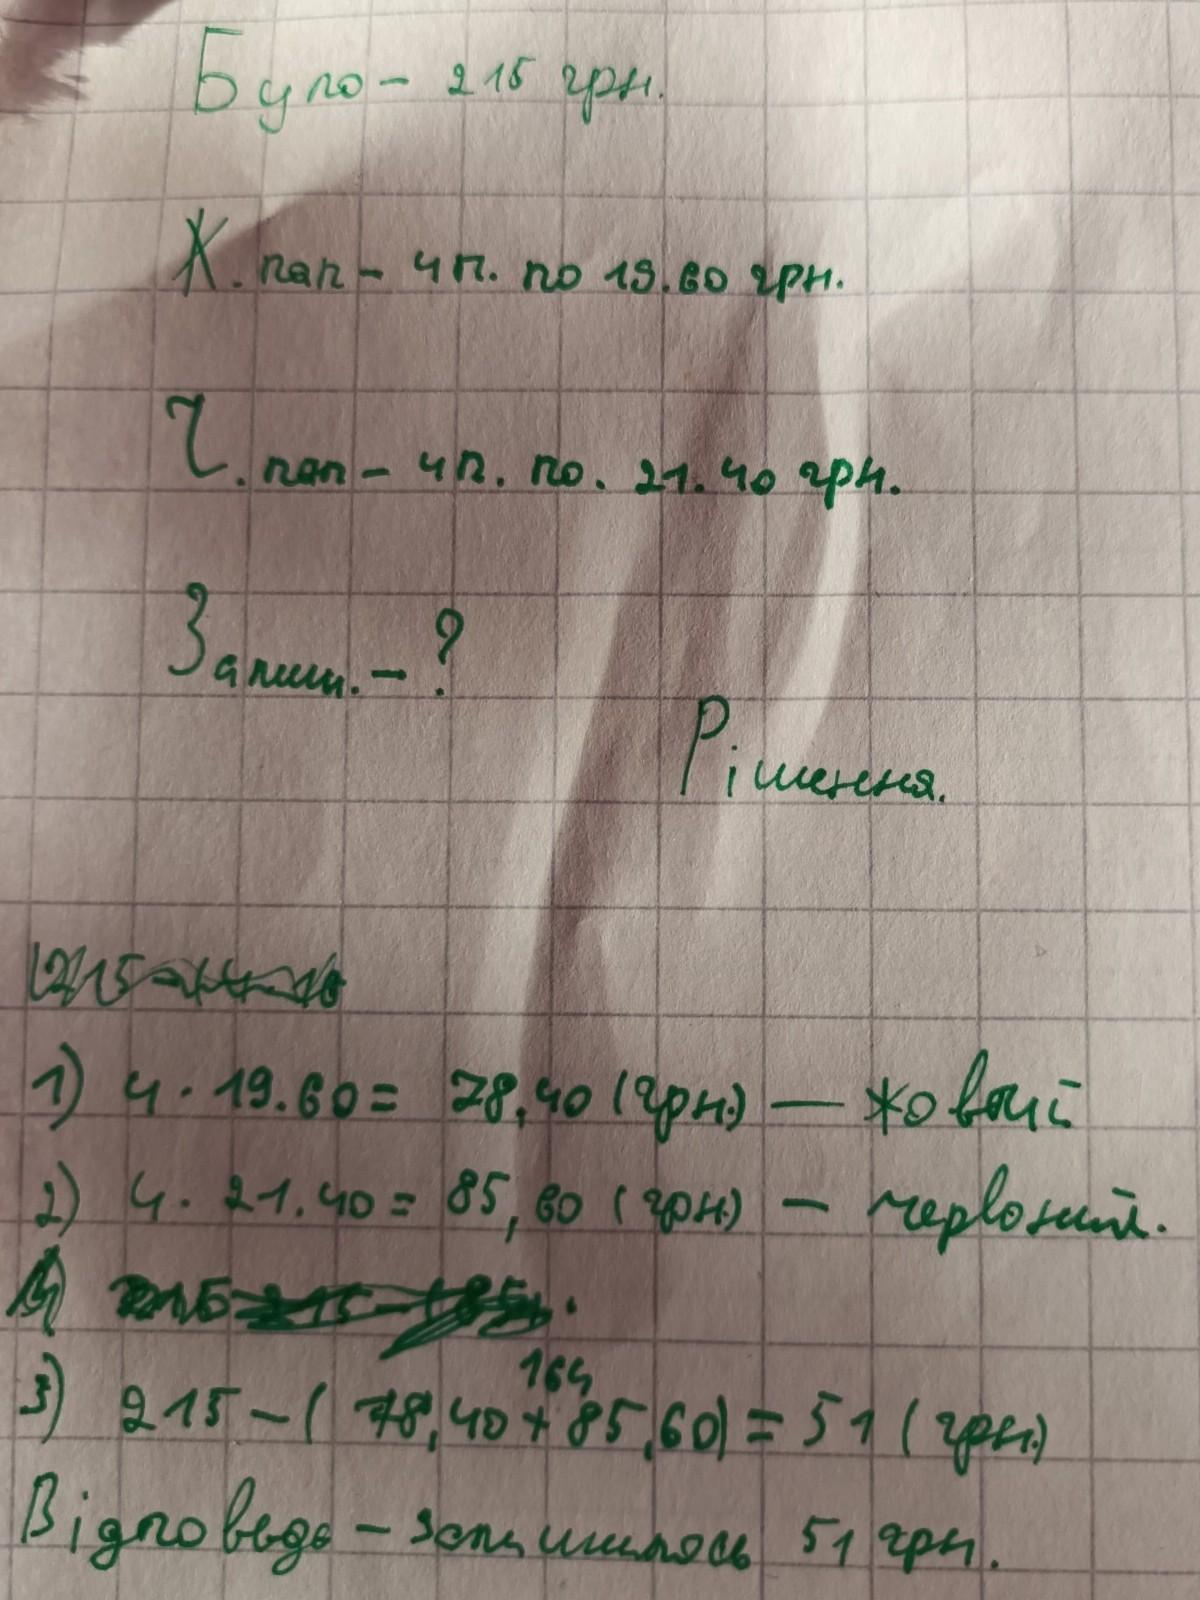 Було - 215 грн.
Ж. пап - 4 п. по 19.60 грн.
Ч. пап - 4 п. по. 21.40 грн.
Залиш. - ?
Рішення.
1) 4 · 19.60 = 78,40 (грн.) — жовтий
2) 4 · 21.40 = 85,60 (грн.) — червоний.
164
3) 215 - (78,40 + 85,60) = 51 (грн.)
Відповедь - залишилось 51 грн.